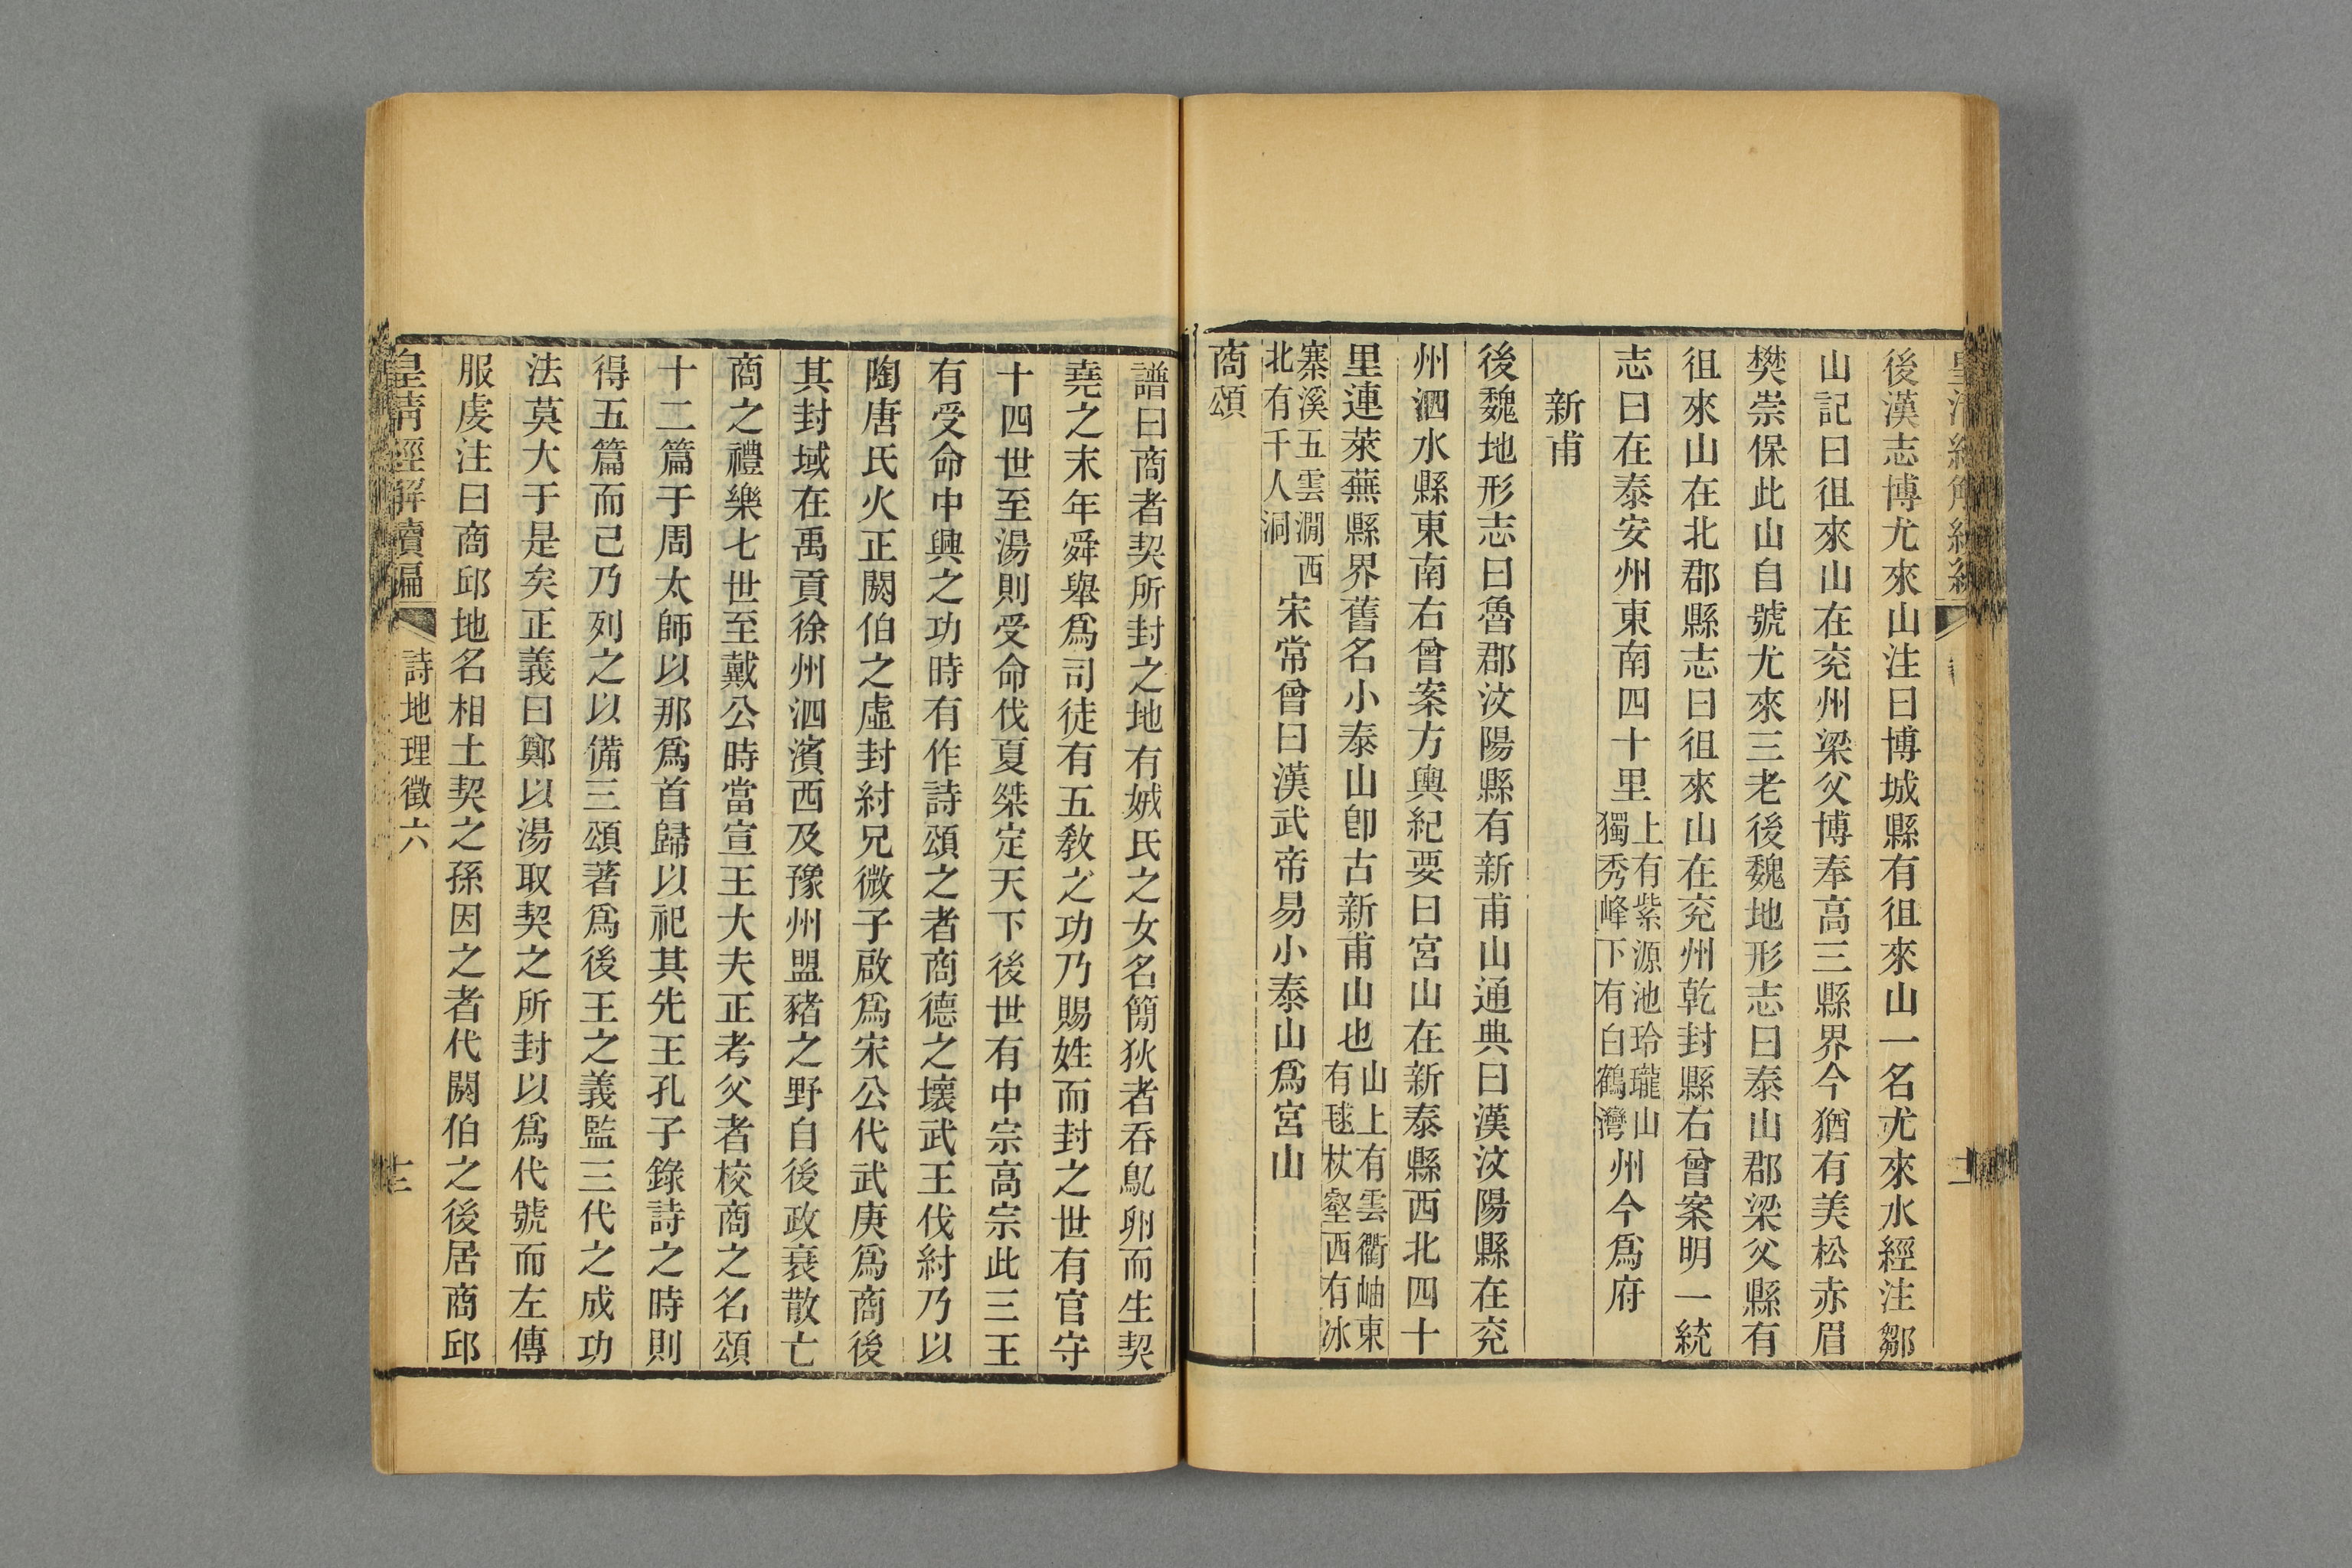 後漢志博尤來山注曰博城縣有徂來山一名尤來水經注鄒
山記曰徂來山在兖州梁父博奉高三縣界今猶有美松赤眉
樊崇保此山自號尤來三老後魏地形志曰泰山郡梁父縣有
徂來山在北郡縣志曰徂來山在兖州乾封縣右曾案明一統
志曰在泰安州東南四十里上有紫源池玲瓏山獨秀峰下有白鶴灣州今爲府
新甫
後魏地形志曰魯郡汶陽縣有新甫山通典曰漢汶陽縣在兖
州泗水縣東南右曾案方輿紀要曰宮山在新泰縣西北四十
里連萊蕪縣界舊名小泰山卽古新甫山也山上有雲衢岫東有毬杖壑西有冰
寨溪五雲澗西北有千人洞宋常曾曰漢武帝易小泰山爲宮山
商頌
譜曰商者契所封之地有娀氏之女名簡狄者吞鳦卵而生契
堯之末年舜舉爲司徒有五敎之功乃賜姓而封之世有官守
十四世至湯則受命伐夏桀定天下後世有中宗高宗此三王
有受命中興之功時有作詩頌之者商德之壞武王伐紂乃以
陶唐氏火正閼伯之虛封紂兄微子啟爲宋公代武庚爲商後
其封域在禹貢徐州泗濱西及豫州盟豬之野自後政衰散亡
商之禮樂七世至戴公時當宣王大夫正考父者校商之名頌
十二篇于周太師以那爲首歸以祀其先王孔子錄詩之時則
得五篇而已乃列之以備三頌著爲後王之義監三代之成功
法莫大于是矣正義曰鄭以湯取契之所封以爲代號而左傳
服虔注曰商邱地名相土契之孫因之者代閼伯之後居商邱
皇清經解續編
詩地理徵六